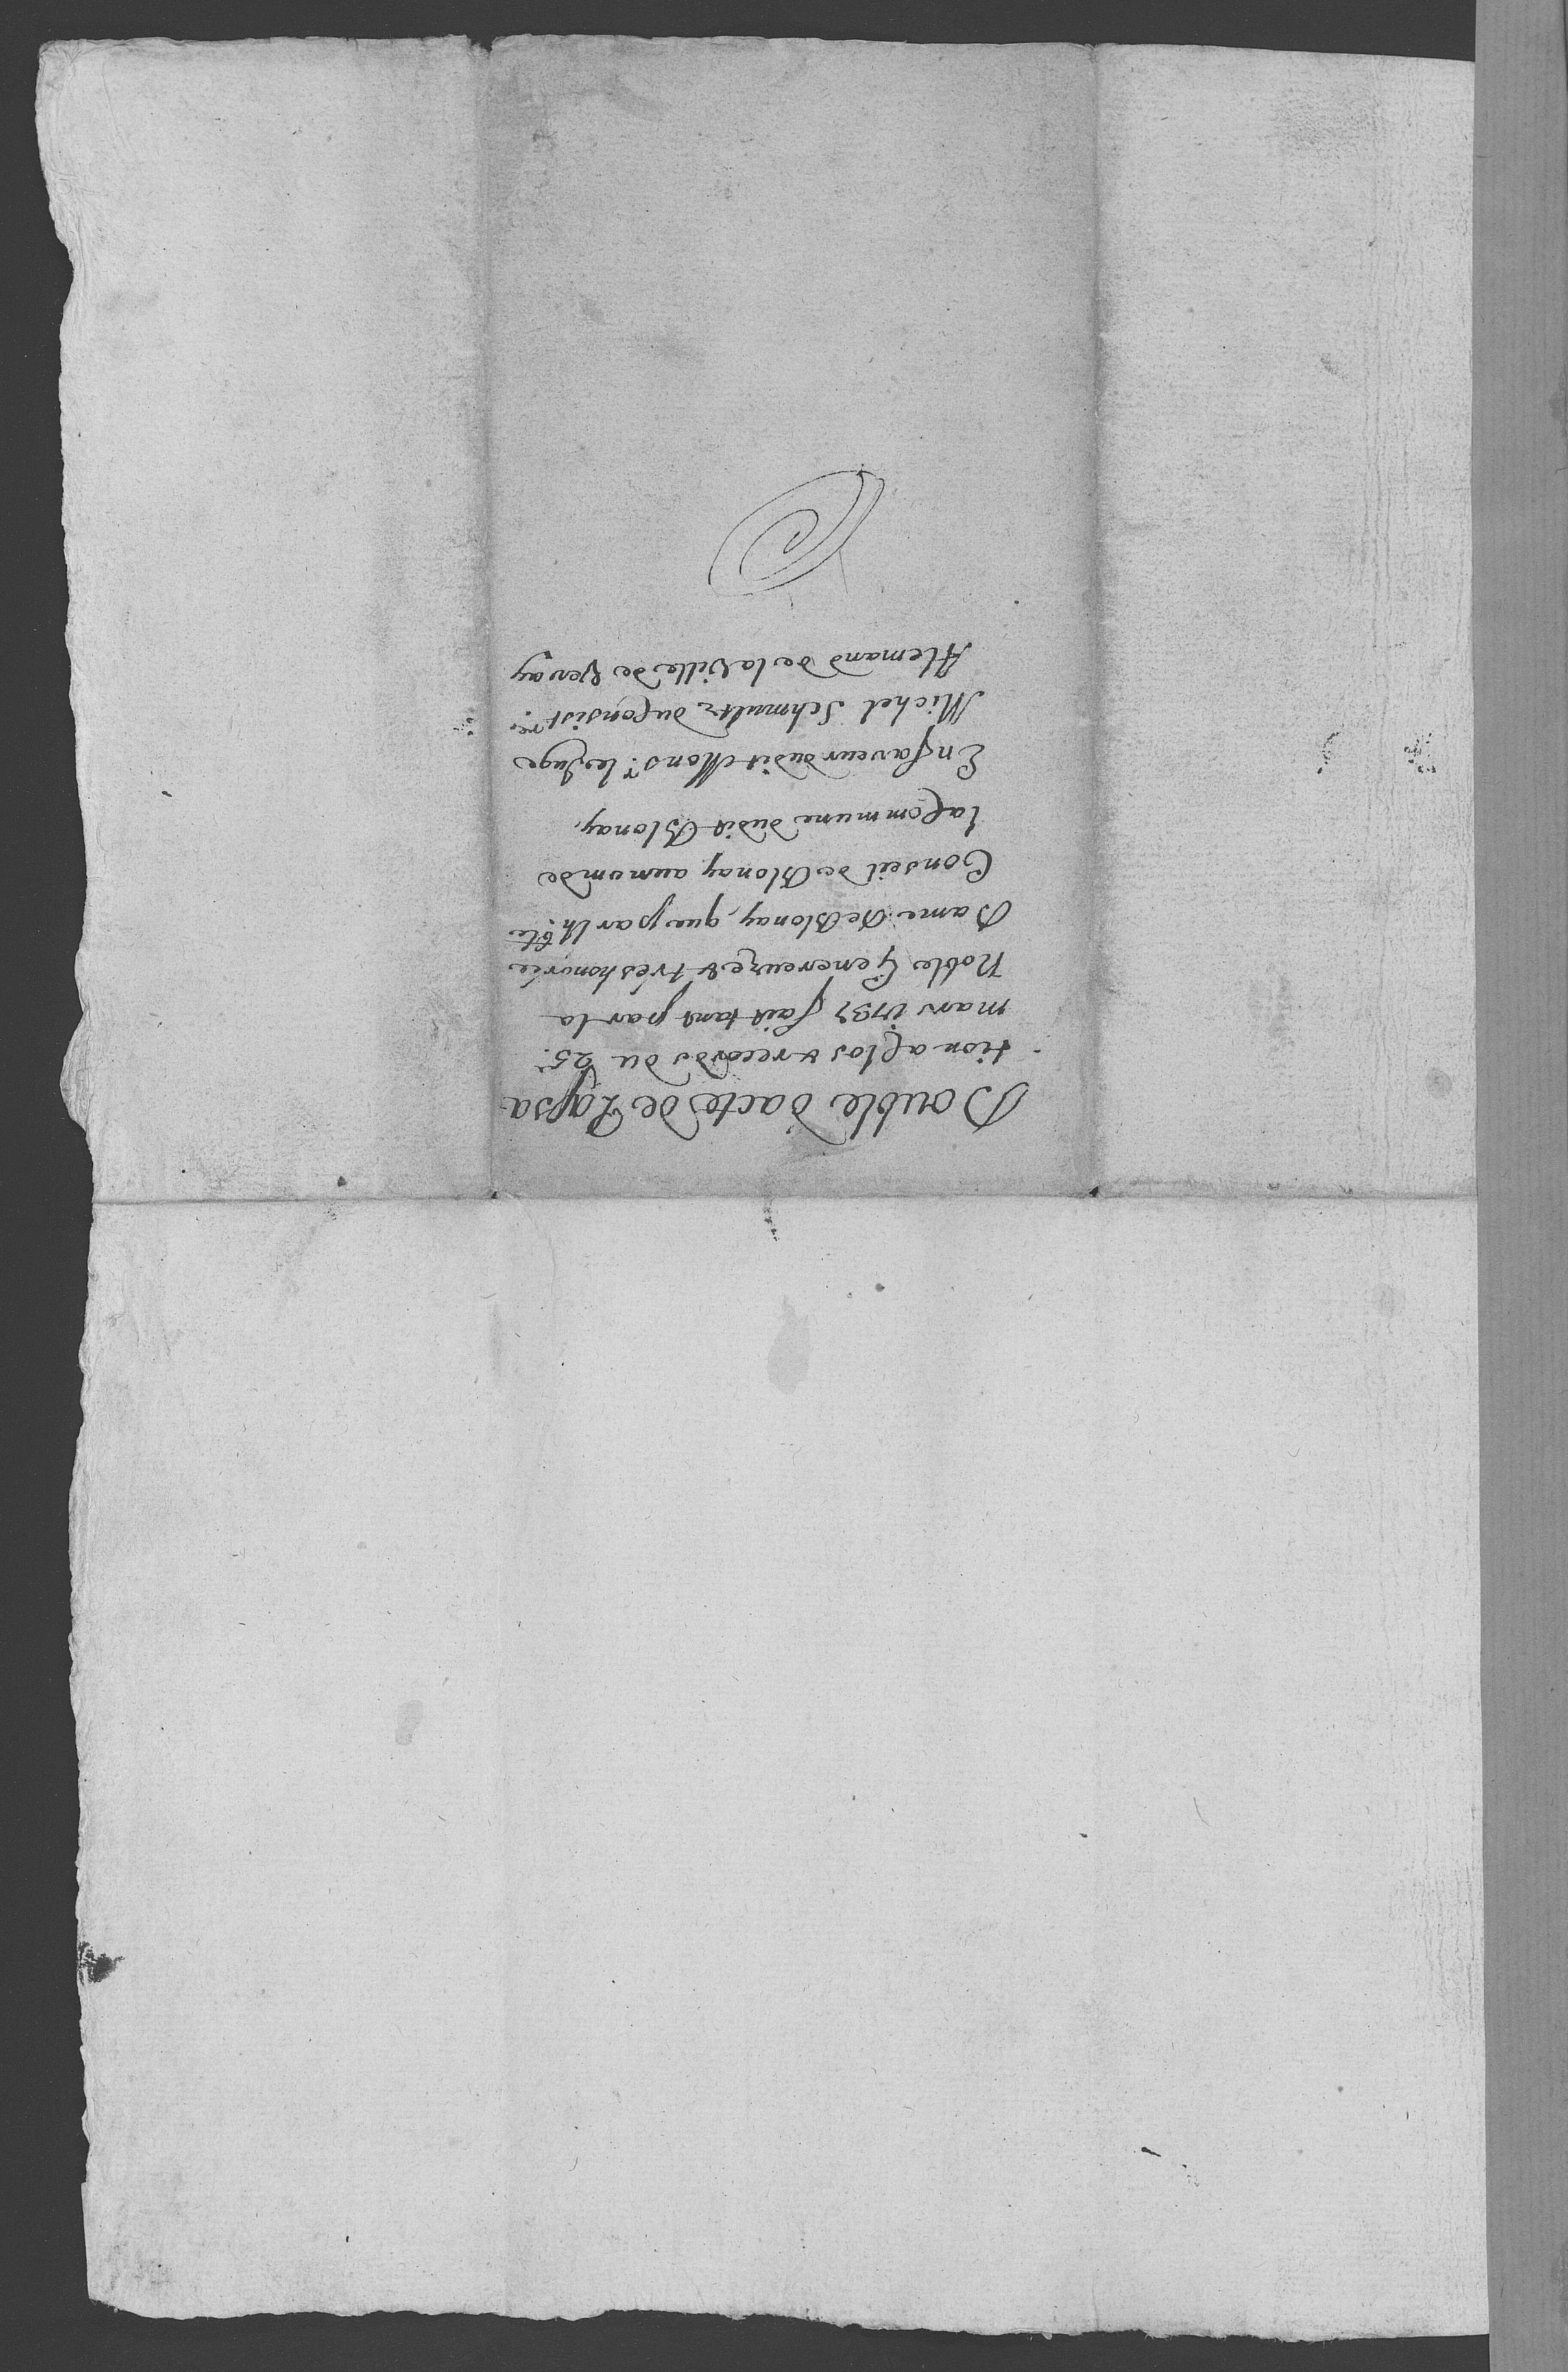 Double d'acte de Passa
tion a Clos & record du 25.
mars 1737 fait tant par la
Noble Genereuze & tréshonorée
Dame de Blonay, que par l'h.ble
Conseil de Blonay au nom de
la Commune dudit Blonay,
En faveur dudit Mons.r le Juge
Michel Schmultz du Consist.re
Alemand de la Ville de Vevay